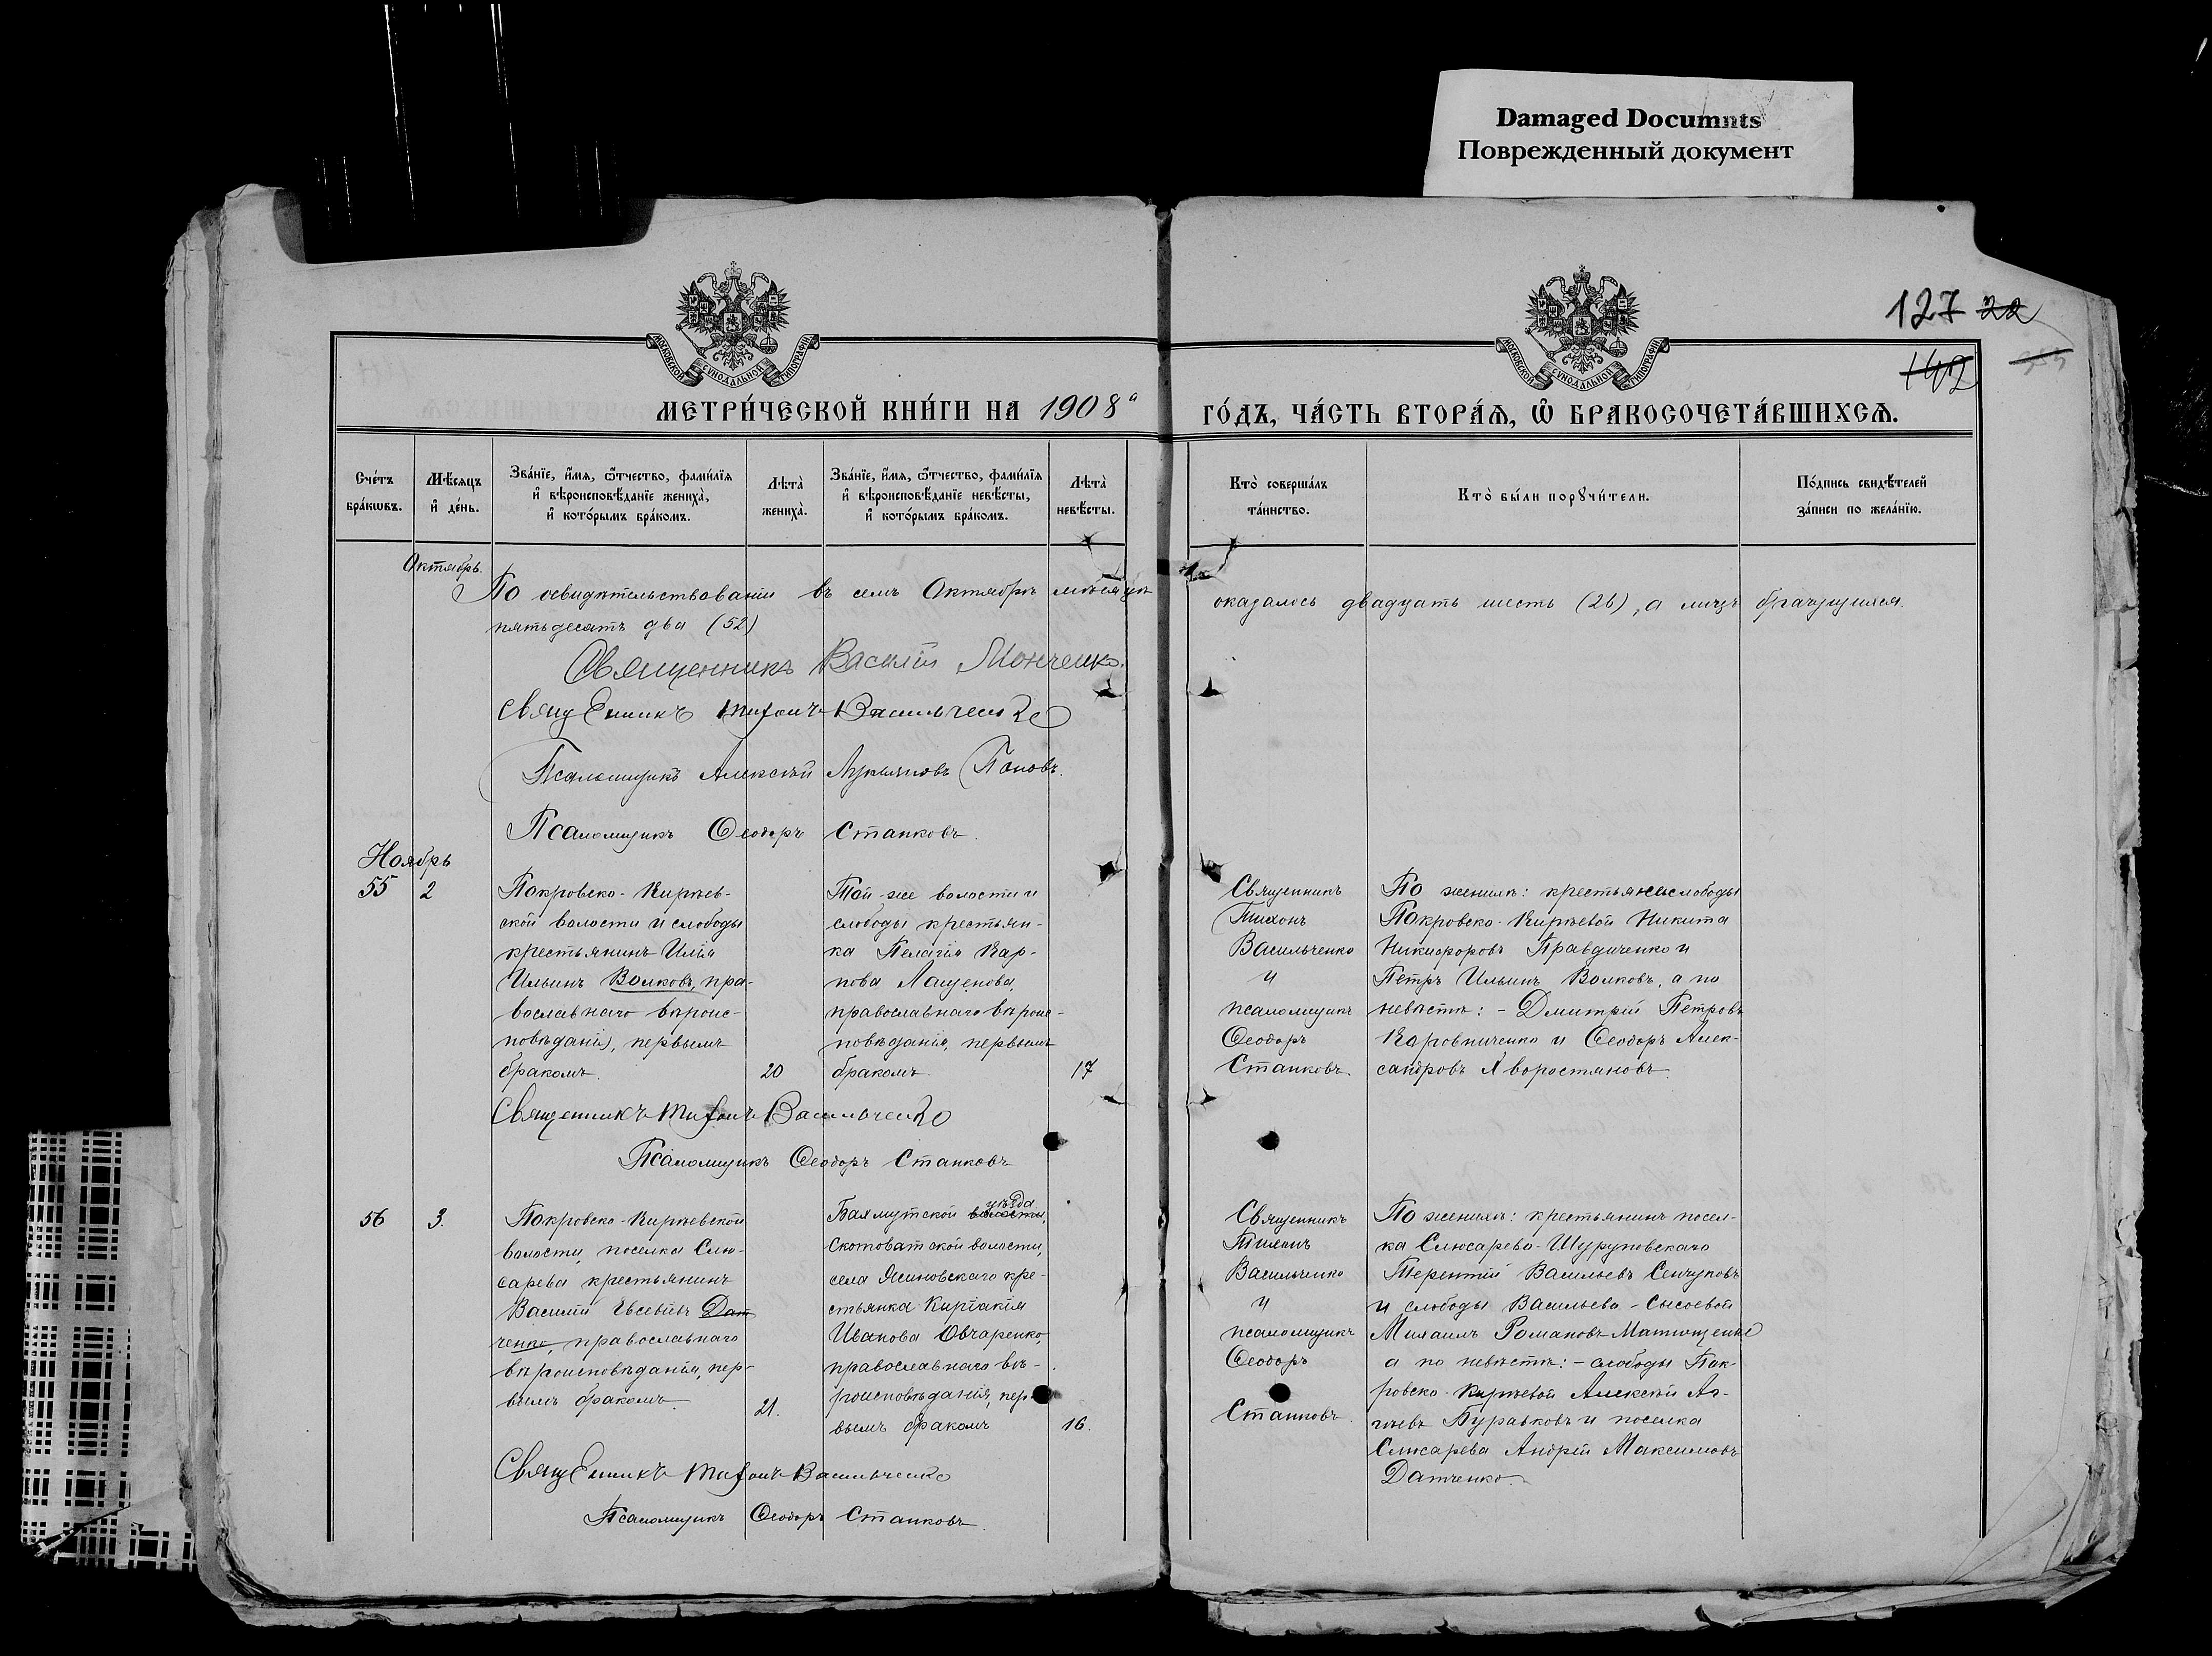 Damaged Documnts
Поврежденный документ
127 22
142
МОСКОВСКОЙ СѴНОДАЛЬНОЙ ТИПОГРАФІИ
МОСКОВСКОЙ СѴНОДАЛЬНОЙ ТИПОГРАФІИ
МЕТРИ́ЧЕСКОЙ КНИ́ГИ НА 1908 ГО́ДЪ, ЧА́СТЬ ВТОРА́Ѧ, Ѡ҆ БРАКОСОЧЕТА́ВШИХСѦ.
Сче́тъ бра́кѡвъ.
Мѣ́сяцъ и҆ де́нь.
Зва́нїе, и҆́мя, ѻ҆́тчество, фами́лїя и҆ вѣроисповѣ́данїе жениха̀, и҆ кото́рымъ бра́комъ.
Лѣта̀ жениха̀.
Зва́нїе, и҆́мя, ѻ҆́тчество, фами́лїя и҆ вѣроисповѣ́данїе невѣ́сты, и҆ кото́рымъ бра́комъ.
Лѣта̀ невѣ́сты.
Кто̀ соверша́лъ та́инство.
Кто̀ бы́ли порꙋчи́тели.
По́дпись свидѣ́телей за́писи по жела́нїю.
Октябрь.
По освидѣтельствованіи въ семъ Октябрѣ мѣсяцѣ оказалось двадцать шесть (26), а лицъ брачущихся
пятьдесятъ два (52)
Священникъ Василій Монченко.
Священникъ Тихонъ Васильченко
Псаломщикъ Алексѣй Лукьяновъ Поповъ.
Псаломщикъ Ѳеодоръ Станковъ.
Ноябрь
55 2
Покровско-Кирѣев-
ской волости и слободы
крестьянинъ Илья
Ильинъ Волковъ, пра-
вославнаго вѣроис-
повѣданія, первымъ
бракомъ.
20
Той-же волости и
слободы крестьян-
ка Пелагія Кар-
пова Лащенова,
православнаго вѣроис-
повѣданія, первымъ
бракомъ
17
Священникъ
Тихонъ
Васильченко
и
псаломщикъ
Ѳеодоръ
Станковъ.
По женихѣ: крестьяне слободы
Покровско-Кирѣевой Никита
Никифоровъ Правдиченко и
Петръ Ильинъ Волковъ, а по
невѣстѣ: - Дмитрій Петровъ
Коровниченко и Ѳеодоръ Алек-
сандровъ Хворостяновъ.
Священникъ Тихонъ Васильченко
Псаломщикъ Ѳеодоръ Станковъ
56 3.
Покровско-Кирѣевской
волости, поселка Слю-
сарева крестьянинъ
Василій Евсевіевъ Дат
ченко, православнаго
вѣроисповѣданія, пер-
вымъ бракомъ.
21.
уѣзда
Бахмутской волости,
Скотоватской волости,
села Ясиновскаго кре-
стьянка Киріакія
Иванова Овчаренко,
православнаго вѣ-
роисповѣданія, пер-
вымъ бракомъ
16.
Священникъ
Тихонъ
Васильченко
и
псаломщикъ
Ѳеодоръ
Станковъ.
По женихѣ: крестьянинъ посел-
ка Слюсарево-Шуруповскаго
Терентій Васильевъ Сенчуковъ
и слободы Васильево-Сысоевой
Михаилъ Романовъ Матющенко
а по невѣстѣ: - слободы Пок-
ровско-Кирѣевой Алексѣй
Буравковъ и поселка
Слюсарева Андрей Максимовъ
Датченко.
Священникъ Тихонъ Васильченко
Псаломщикъ Ѳеодоръ Станковъ.